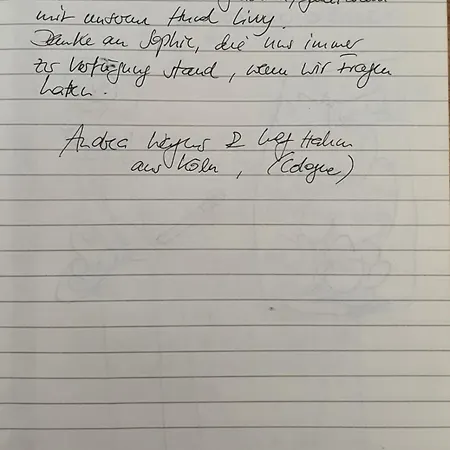 mit unserem Hund Livy.
Danke an Sophie, die uns immer
zur Verfügung stand, wenn wir Fragen
hatten.
Andrea &
aus Köln, (Cologne)